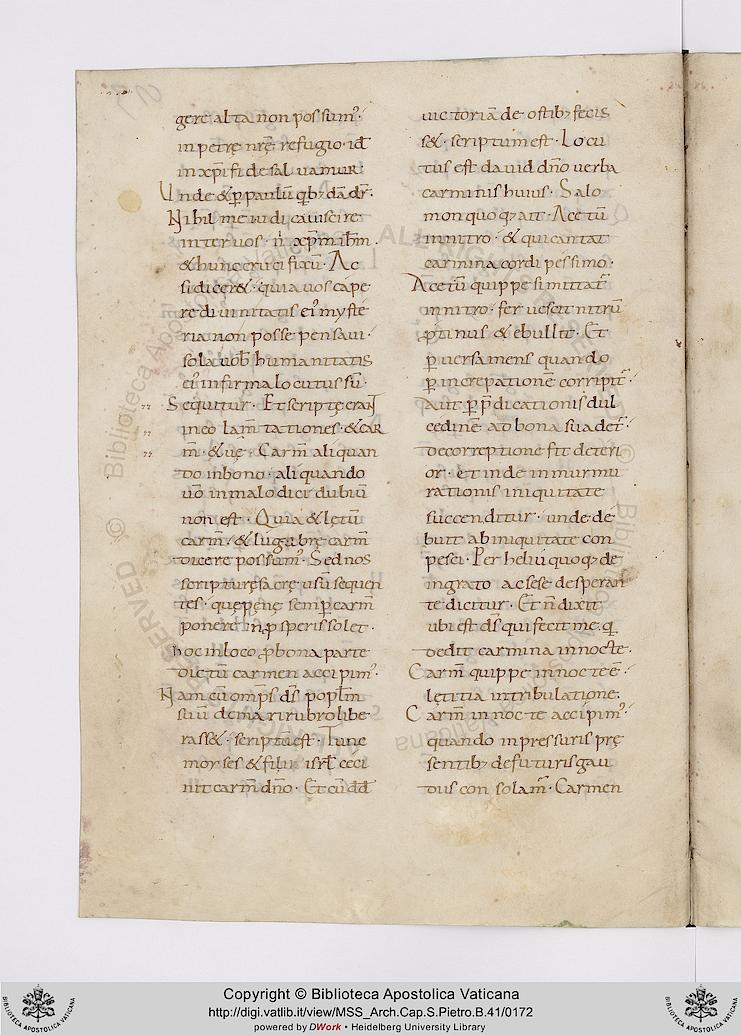 gere alta non possum᛫
in petrę nrę refugio· id
in xpi fide saluamur·
Unde & p paulū qb; dā dr·
Nihil me iudicaui scire
inter uos· n̄ xpm ihm·
& hunc crucifixū· Ac
si dicer&· quia uos cape
re diuinitatis ei᛫ myste
ria non posse pensaui·
sola uob humanitatis
ei᛫ infirma locutus sū·
Sequitur· Et scriptę erant
in eo lam̄tationes· & car
m̄· & uę· Carm̄ aliquan
do in bono· aliquando
uō in malo dici dubiū
non est· Quia & lętū
carm̄· & lugubrę carm̄
dicere possum᛫· Sed nos
scripturę sacrę usū sequen
tes· quę penę semp carm̄
ponere in psperis solet·
hoc in loco p bona parte
dictū carmen accipim᛫·
Nam cū omps ds poplm̄
suū de mari rubro libe
rass&· scriptū est· Tunc
moyses & filii isrl ceci
nit carm̄ dno· Et cū dd
uictoriā de ostib; fecis
s&· scriptum est· Locu
tus est dauid dno uerba
carminis huius· Salo
mon quoq; ait· Acetū
in nitro· & qui cantat
carmina cordi pessimo·
Acetū quippe si mittat᛫
in nitro· feruescit nitrū
ptinus & ebullit· Et
puersa mens quando
p increpationē corripit᛫·
Aut p pdicationis dul
cedinē ad bona suadet᛫·
de correptione fit deteri
or· et inde in murmu
rationis iniquitate
succenditur· unde de
buit ab iniquitate con
pesci· Per heliu quoq; de
ingrato ac sese desperan
te dicitur· Et n̄ dixit
ubi est ds qui fecit me· q
dedit carmina in nocte·
Carm̄ quippe in nocte ē·
lętitia in tribulatione·
Carm̄ in nocte accipim᛫·
quando in pressuris prę
sentib; de futuris gau
diis consolam᛫· Carmen
Copyright © Biblioteca Apostolica Vaticana
http://digi.vatlib.it/view/MSS_Arch.Cap.S.Pietro.B.41/0172
powered by DWork • Heidelberg University Library